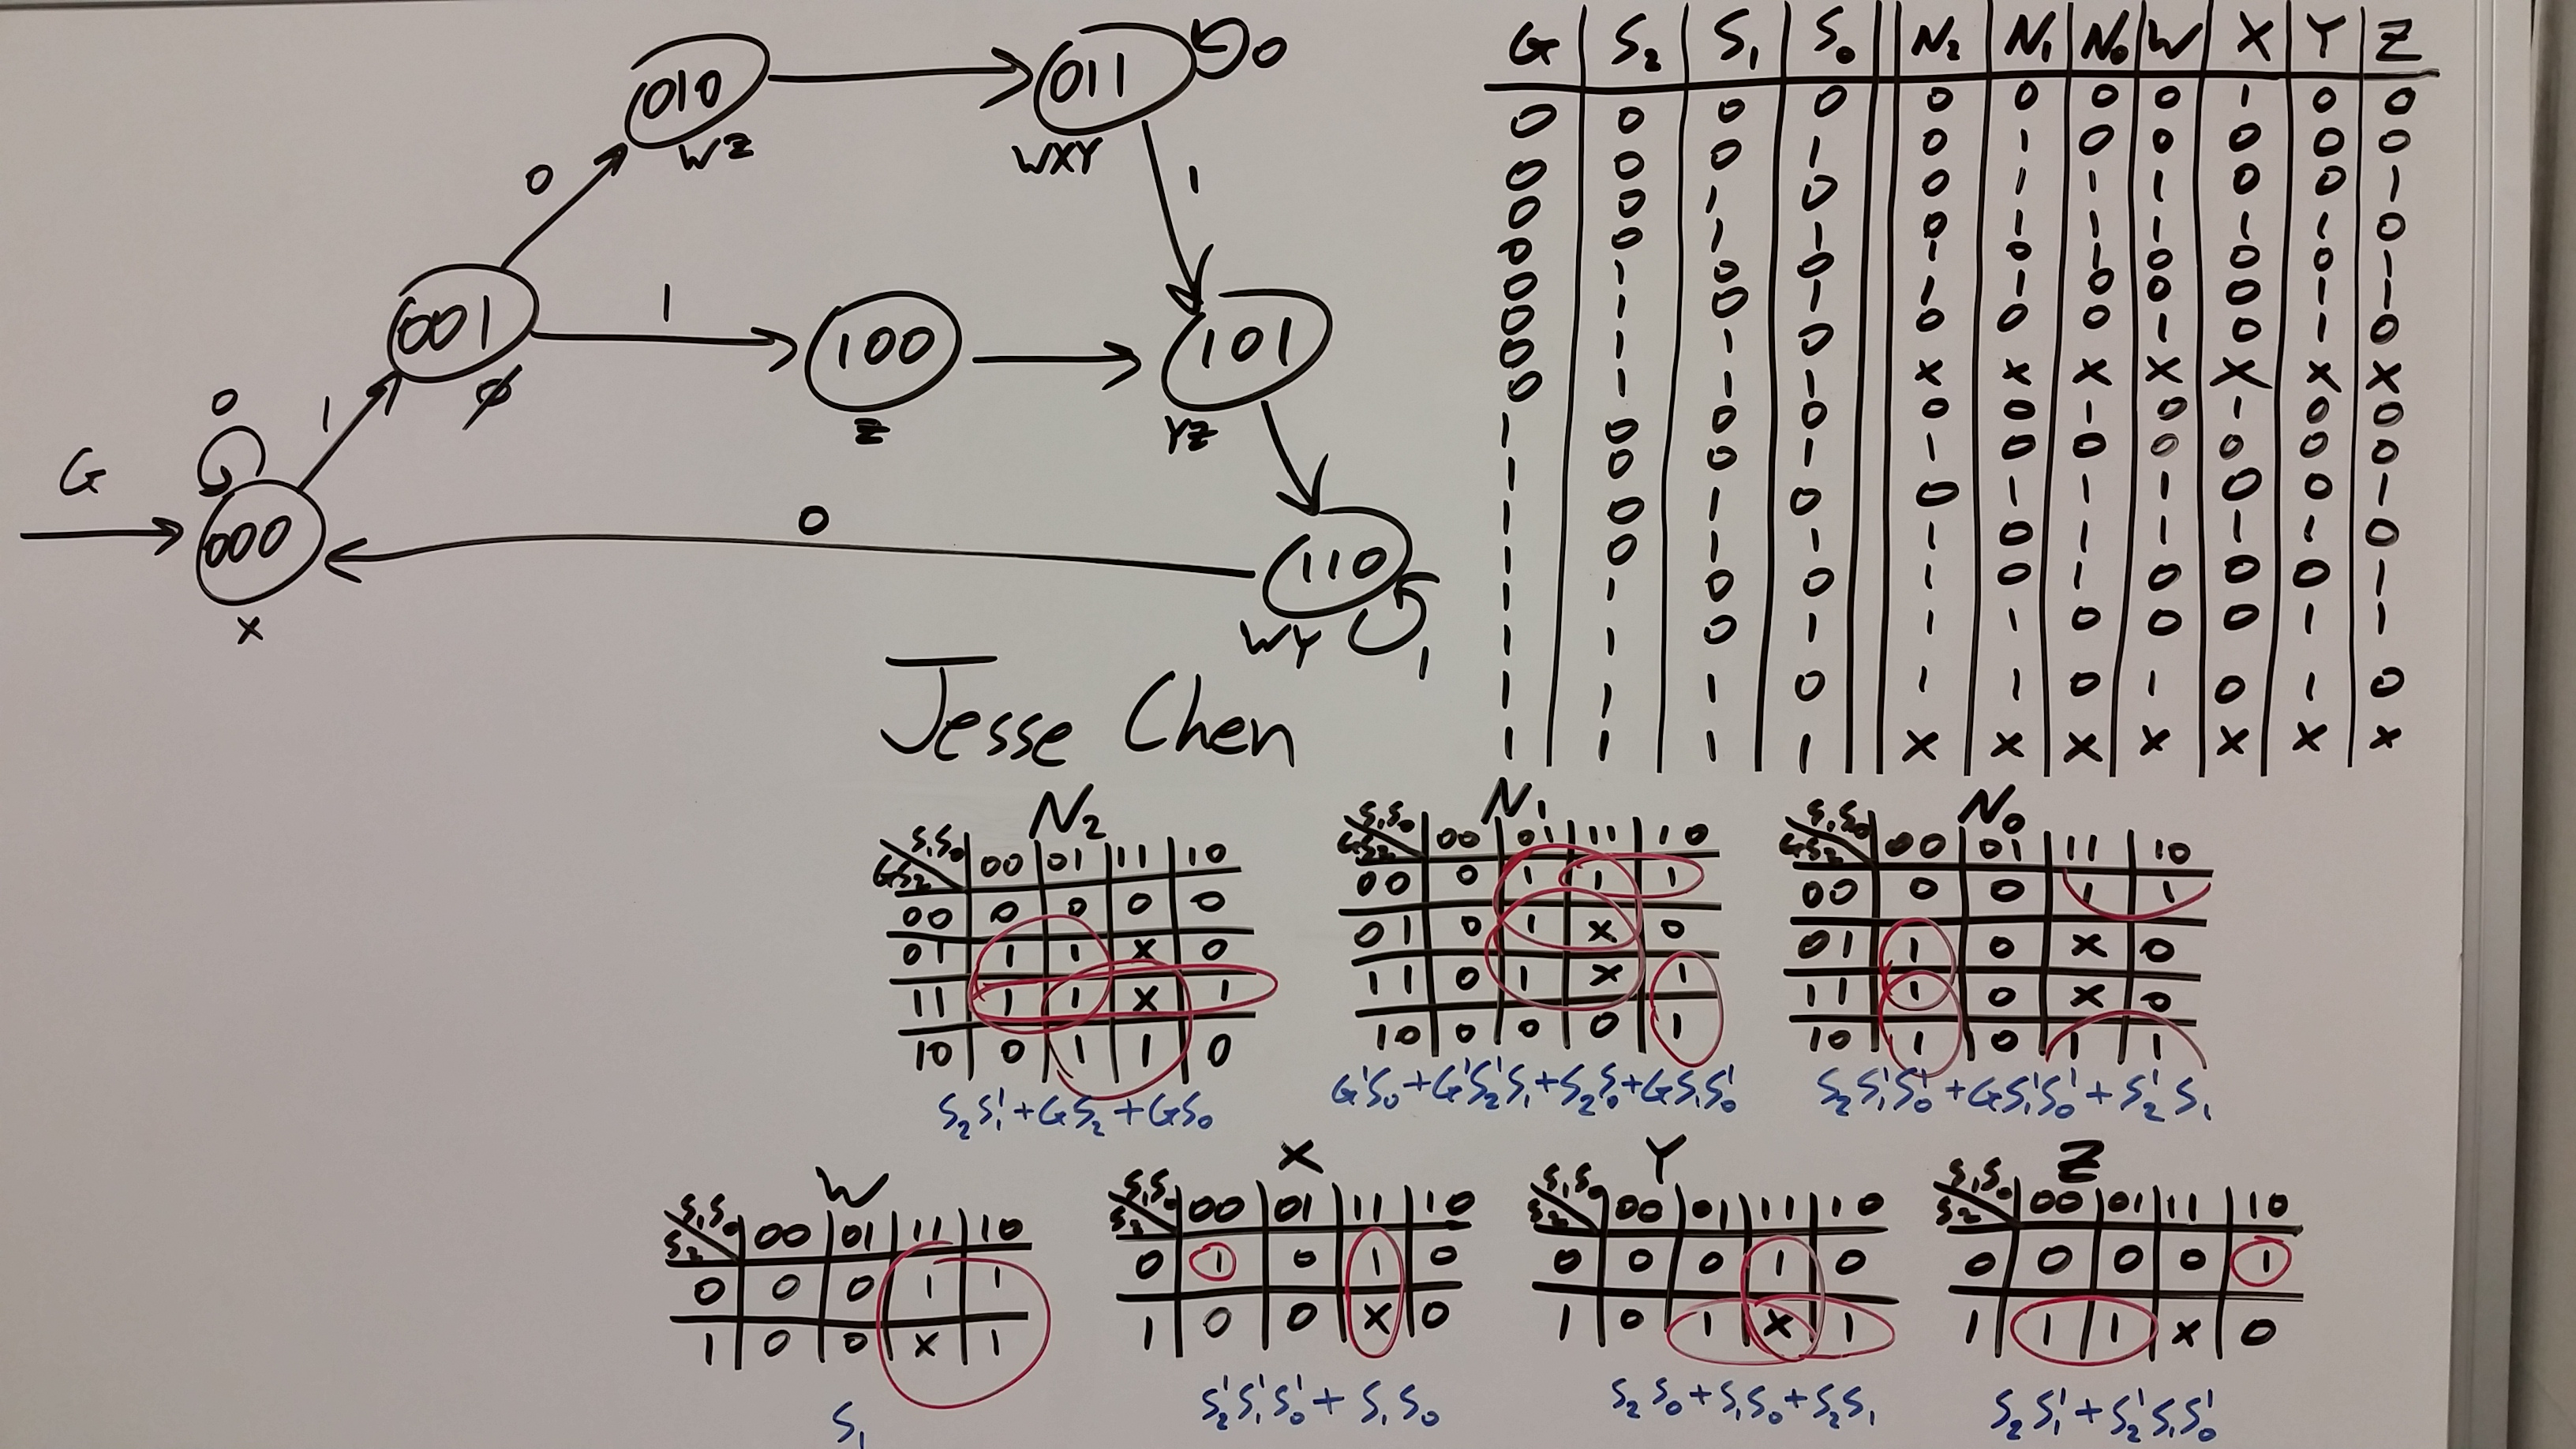 010
WZ
011
0
WXY
0
1
001
ϕ
1
100
Z
101
YZ
0
1
G
000
X
0
110
WY
1
Jesse Chen
G S₂ S₁ S₀ N₂ N₁ N₀ W X Y Z
0 0 0 0 0 0 0 0 1 0 0
0 0 0 1 0 1 0 0 0 0 0
0 0 1 0 0 1 1 1 0 0 1
0 0 1 1 0 1 1 1 1 1 0
0 1 0 0 1 0 1 0 0 0 1
0 1 0 1 1 1 0 0 0 1 1
0 1 1 0 0 0 0 1 0 1 0
0 1 1 1 X X X X X X X
1 0 0 0 0 0 1 0 1 0 0
1 0 0 1 1 0 0 0 0 0 0
1 0 1 0 0 1 1 1 0 0 1
1 0 1 1 1 0 1 1 1 1 0
1 1 0 0 1 0 1 0 0 0 1
1 1 0 1 1 1 0 0 0 1 1
1 1 1 0 1 1 0 1 0 1 0
1 1 1 1 X X X X X X X
N₂
S₁S₀
GS₂ 00 01 11 10
00 0 0 0 0
01 1 1 X 0
11 1 1 X 1
10 0 1 1 0
S₂S₁' + GS₂ + GS₀
N₁
S₁S₀
GS₂ 00 01 11 10
00 0 1 1 1
01 0 1 X 0
11 0 1 X 1
10 0 0 0 1
G'S₀ + G'S₂'S₁ + S₂S₀ + GS₁S₀'
N₀
S₁S₀
GS₂ 00 01 11 10
00 0 0 1 1
01 1 0 X 0
11 1 0 X 0
10 1 0 1 1
S₂S₁'S₀' + GS₁'S₀' + S₂'S₁
W
S₁S₀
S₂ 00 01 11 10
0 0 0 1 1
1 0 0 X 1
S₁
X
S₁S₀
S₂ 00 01 11 10
0 1 0 1 0
1 0 0 X 0
S₂'S₁'S₀' + S₁S₀
Y
S₁S₀
S₂ 00 01 11 10
0 0 0 1 0
1 0 1 X 1
S₂S₀ + S₁S₀ + S₂S₁
Z
S₁S₀
S₂ 00 01 11 10
0 0 0 0 1
1 1 1 X 0
S₂S₁' + S₂'S₁S₀'